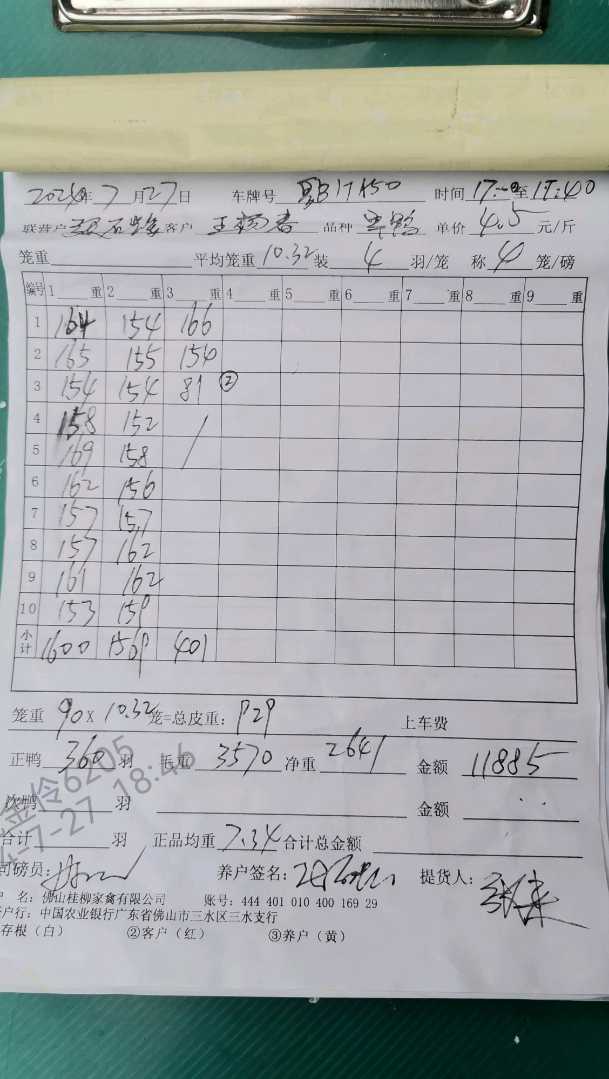 2024年 7 月 27 日 车牌号 17A50 时间 17:00至17:40
联营户 客户 王杨春 品种 单价 4.5 元/斤
笼重 平均笼重 10.32 装 4 羽/笼 称 4 笼/磅
编号 1 重 2 重 3 重 4 重 5 重 6 重 7 重 8 重 9 重
1 164 154 166
2 165 155 154
3 154 154 81 ②
4 158 152 /
5 169 158
6 162 156
7 157 157
8 157 162
9 161 162
10 153 159
小计 1600 1569 401
笼重 90 x 10.32 笼=总皮重: 929 上车费
正鸭 360 羽 毛重 3570 净重 2641 金额 11885
次鸭 羽 金额
合计 羽 正品均重 7.34 合计总金额
司磅员: 养户签名: 提货人:
户 名: 佛山桂柳家禽有限公司 账号: 444 401 010 400 169 29
开户行: 中国农业银行广东省佛山市三水区三水支行
存根(白) ②客户(红) ③养户(黄)
金伶6205
-7-27 18:46